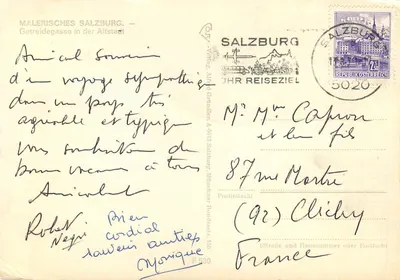 MALERISCHES SALZBURG. —
Getreidegasse in der Altstadt
Amical Souvenir
d'un voyage sympathique
dans un pays très
agréable et typique
vous souhaitons de
bonnes vacances à tous
Amicalement
Robert
Negri
Bien
cordial
souvenir
Monique
SALZBURG
IHR REISEZIEL
SALZBURG
5020
REPUBLIK ÖSTERREICH
Mr Mme Capron
et leur fils
87 rue Martre
(92) Clichy
France